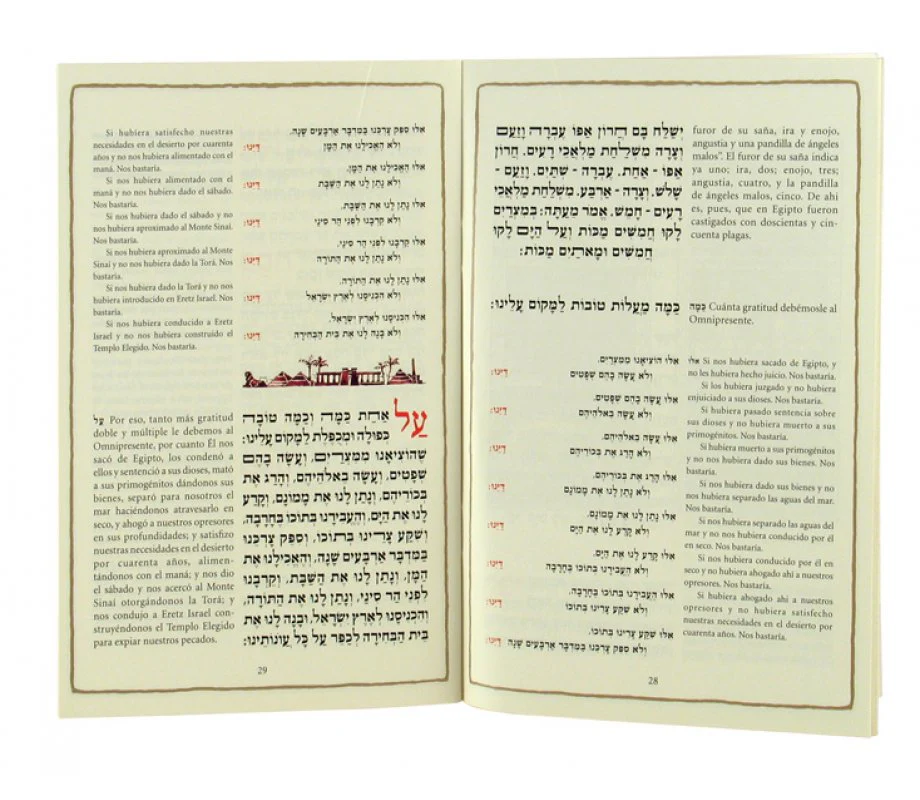 יְשַׁלַּח בָּם חֲרוֹן אַפּוֹ עֶבְרָה וָזַעַם
וְצָרָה מִשְׁלַחַת מַלְאֲכֵי רָעִים. חֲרוֹן
אַפּוֹ - אַחַת. עֶבְרָה - שְׁתַּיִם. וָזַעַם -
שָׁלֹשׁ. וְצָרָה - אַרְבַּע. מִשְׁלַחַת מַלְאֲכֵי
רָעִים - חָמֵשׁ. אֱמֹר מֵעַתָּה: בְּמִצְרַיִם
לָקוּ חֲמִשִּׁים מַכּוֹת וְעַל הַיָּם לָקוּ
חֲמִשִּׁים וּמָאתַיִם מַכּוֹת:
furor de su saña, ira y enojo,
angustia y una pandilla de ángeles
malos". El furor de su saña indica
ya uno; ira, dos; enojo, tres;
angustia, cuatro, y la pandilla
de ángeles malos, cinco. De ahi
es, pues, que en Egipto fueron
castigados con doscientas y cin-
cuenta plagas.
כַּמָּה מַעֲלוֹת טוֹבוֹת לַמָּקוֹם עָלֵינוּ:
כַּמָּה Cuánta gratitud debémosle al
Omnipresente.
אִלּוּ הוֹצִיאָנוּ מִמִּצְרַיִם.
וְלֹא עָשָׂה בָהֶם שְׁפָטִים דַּיֵּנוּ:
אִלּוּ עָשָׂה בָהֶם שְׁפָטִים.
וְלֹא עָשָׂה בֵאלֹהֵיהֶם דַּיֵּנוּ:
אִלּוּ עָשָׂה בֵאלֹהֵיהֶם.
וְלֹא הָרַג אֶת בְּכוֹרֵיהֶם דַּיֵּנוּ:
אִלּוּ הָרַג אֶת בְּכוֹרֵיהֶם.
וְלֹא נָתַן לָנוּ אֶת מָמוֹנָם דַּיֵּנוּ:
אִלּוּ נָתַן לָנוּ אֶת מָמוֹנָם.
וְלֹא קָרַע לָנוּ אֶת הַיָּם דַּיֵּנוּ:
אִלּוּ קָרַע לָנוּ אֶת הַיָּם.
וְלֹא הֶעֱבִירָנוּ בְתוֹכוֹ בֶּחָרָבָה דַּיֵּנוּ:
אִלּוּ הֶעֱבִירָנוּ בְתוֹכוֹ בֶּחָרָבָה.
וְלֹא שִׁקַּע צָרֵינוּ בְּתוֹכוֹ דַּיֵּנוּ:
אִלּוּ שִׁקַּע צָרֵינוּ בְּתוֹכוֹ.
וְלֹא סִפֵּק צָרְכֵּנוּ בַּמִּדְבָּר אַרְבָּעִים שָׁנָה דַּיֵּנוּ:
אִלּוּ Si nos hubiera sacado de Egipto, y
no les hubiera hecho juicio. Nos bastaría.
Si los hubiera juzgado y no hubiera
enjuiciado a sus dioses. Nos bastaría.
Si hubiera pasado sentencia sobre
sus dioses y no hubiera muerto a sus
primogénitos. Nos bastaría.
Si hubiera muerto a sus primogénitos
y no nos hubiera dado sus bienes. Nos
bastaría.
Si nos hubiera dado sus bienes y no
nos hubiera separado las aguas del mar.
Nos bastaría.
Si nos hubiera separado las aguas del
mar y no nos hubiera conducido por él
en seco. Nos bastaría.
Si nos hubiera conducido por él en
seco y no hubiera ahogado ahi a nuestros
opresores. Nos bastaría.
Si hubiera ahogado ahi a nuestros
opresores y no hubiera satisfecho
nuestras necesidades en el desierto por
cuarenta años. Nos bastaría.
28
אִלּוּ סִפֵּק צָרְכֵּנוּ בַּמִּדְבָּר אַרְבָּעִים שָׁנָה.
וְלֹא הֶאֱכִילָנוּ אֶת הַמָּן דַּיֵּנוּ:
אִלּוּ הֶאֱכִילָנוּ אֶת הַמָּן.
וְלֹא נָתַן לָנוּ אֶת הַשַּׁבָּת דַּיֵּנוּ:
אִלּוּ נָתַן לָנוּ אֶת הַשַּׁבָּת.
וְלֹא קֵרְבָנוּ לִפְנֵי הַר סִינַי דַּיֵּנוּ:
אִלּוּ קֵרְבָנוּ לִפְנֵי הַר סִינַי.
וְלֹא נָתַן לָנוּ אֶת הַתּוֹרָה דַּיֵּנוּ:
אִלּוּ נָתַן לָנוּ אֶת הַתּוֹרָה.
וְלֹא הִכְנִיסָנוּ לְאֶרֶץ יִשְׂרָאֵל דַּיֵּנוּ:
אִלּוּ הִכְנִיסָנוּ לְאֶרֶץ יִשְׂרָאֵל.
וְלֹא בָנָה לָנוּ אֶת בֵּית הַבְּחִירָה דַּיֵּנוּ:
Si hubiera satisfecho nuestras
necesidades en el desierto por cuarenta
años y no nos hubiera alimentado con el
maná. Nos bastaría.
Si nos hubiera alimentado con el
maná y no nos hubiera dado el sábado.
Nos bastaría.
Si nos hubiera dado el sábado y no
nos hubiera aproximado al Monte Sinaí.
Nos bastaría.
Si nos hubiera aproximado al Monte
Sinaí y no nos hubiera dado la Torá. Nos
bastaría.
Si nos hubiera dado la Torá y no nos
hubiera introducido en Eretz Israel. Nos
bastaría.
Si nos hubiera conducido a Eretz
Israel y no nos hubiera construído el
Templo Elegido. Nos bastaría.
עַל אַחַת כַּמָּה וְכַמָּה טוֹבָה
כְפוּלָה וּמְכֻפֶּלֶת לַמָּקוֹם עָלֵינוּ:
שֶׁהוֹצִיאָנוּ מִמִּצְרַיִם, וְעָשָׂה בָהֶם
שְׁפָטִים, וְעָשָׂה בֵאלֹהֵיהֶם, וְהָרַג אֶת
בְּכוֹרֵיהֶם, וְנָתַן לָנוּ אֶת מָמוֹנָם, וְקָרַע
לָנוּ אֶת הַיָּם, וְהֶעֱבִירָנוּ בְתוֹכוֹ בֶּחָרָבָה,
וְשִׁקַּע צָרֵינוּ בְּתוֹכוֹ, וְסִפֵּק צָרְכֵּנוּ
בַּמִּדְבָּר אַרְבָּעִים שָׁנָה, וְהֶאֱכִילָנוּ אֶת
הַמָּן, וְנָתַן לָנוּ אֶת הַשַּׁבָּת, וְקֵרְבָנוּ
לִפְנֵי הַר סִינַי, וְנָתַן לָנוּ אֶת הַתּוֹרָה,
וְהִכְנִיסָנוּ לְאֶרֶץ יִשְׂרָאֵל, וּבָנָה לָנוּ אֶת
בֵּית הַבְּחִירָה לְכַפֵּר עַל כָּל עֲוֹנוֹתֵינוּ:
עַל Por eso, tanto más gratitud
doble y múltiple le debemos al
Omnipresente, por cuanto Él nos
sacó de Egipto, los condenó a
ellos y sentenció a sus dioses, mató
a sus primogénitos dándonos sus
bienes, separó para nosotros el
mar haciéndonos atravesarlo en
seco, y ahogó a nuestros opresores
en sus profundidades; y satisfizo
nuestras necesidades en el desierto
por cuarenta años, alimen-
tándonos con el maná; y nos dio
el sábado y nos acercó al Monte
Sinaí otorgándonos la Torá; y
nos condujo a Eretz Israel con-
struyéndonos el Templo Elegido
para expiar nuestros pecados.
29